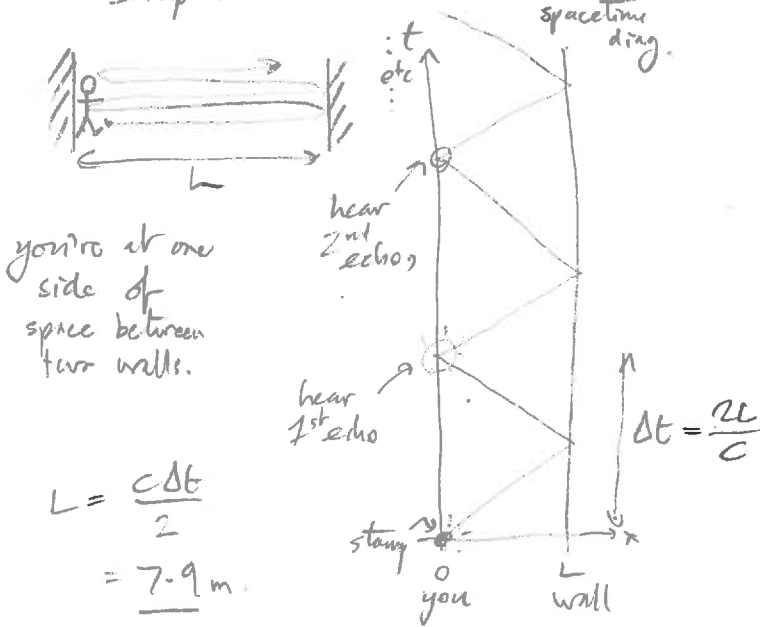 spacetime
diag.
t
etc
L
hear
2nd
echo,
you're at one
side of
space between
two walls.
hear
1st echo
Δt = 2L/C
L = cΔt/2
= 7.9 m
stamp
x
O
L
you
wall